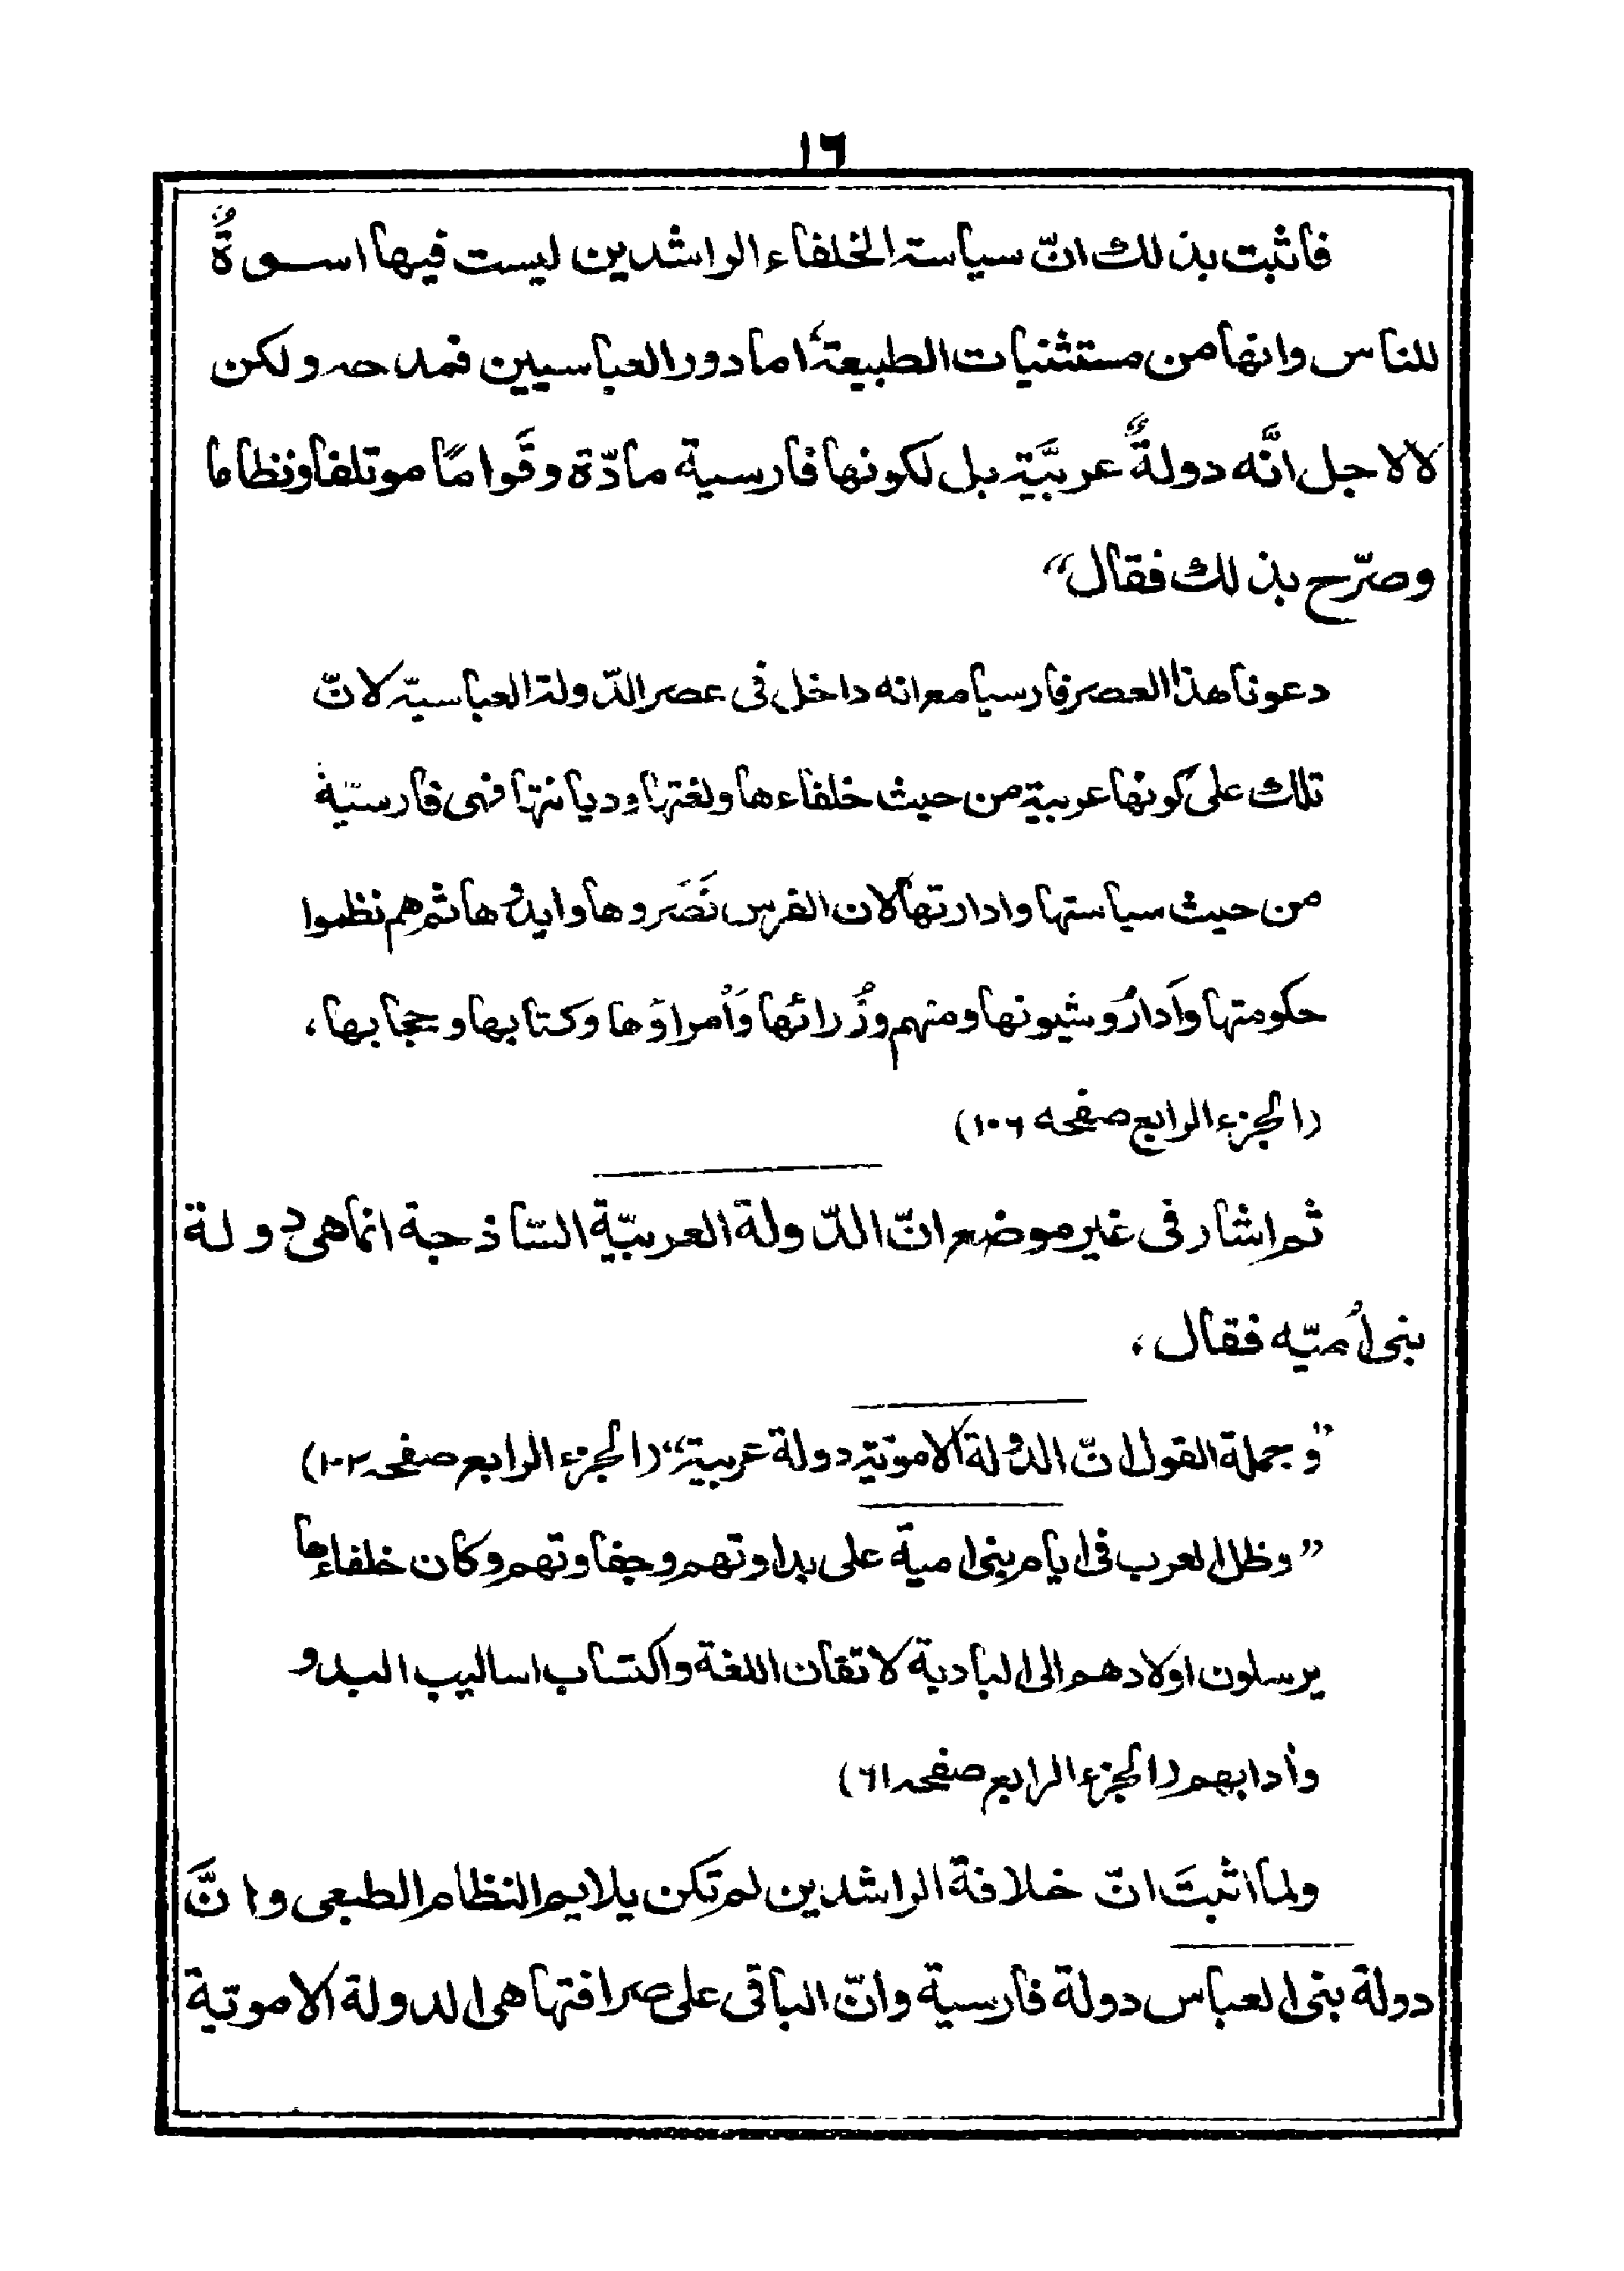 ١٦
فاثبت بذلك انّ سياسة الخلفاء الراشدين ليست فيها اسوةٌ
للناس وانها من مستثنيات الطبيعة، اما دور العباسيين فمدحه ولكن
لا لاجل انَّه دولةٌ عربيَّة بل لكونها فارسية مادّة وقَوامًا موتلفا ونظاما
وصرّح بذلك فقال“
دعونا هذا العصر فارسيا مع انه داخل فى عصر الدّولة العباسيّة لانّ
تلك على كونها عربية من حيث خلفاءها ولغتها وديانتها فهى فارسيّة
من حيث سياستها وادارتها لان الفرس نَصَروها وايدُوها ثم هم نظموا
حكومتها وأداروُ شيونها ومنهم وزُرائها وَأمراؤها وكتابها وحجابها،
(الجزء الرابع صفحه ١٠٦)
ثم اشار فى غير موضع انّ الدّولة العربيّة السّاذجة انما هى دولة
بنى أميّه فقال،
”وجملة القول انّ الدولة الامويّة دولة عربية“ (الجزء الرابع صفحه ١٠٢)
”وظل العرب فى ايام بنى امية على بداوتهم وجفاوتهم وكان خلفاءها
يرسلون اولادهم الى البادية لاتقان اللغة واكتساب اساليب البدو
وأدابهم (الجزء الرابع صفحه ٦١)
ولما اثبتَ انّ خلافة الراشدين لم تكن يلايم النظام الطبعى وانَّ
دولة بنى العباس دولة فارسية وانّ الباقى على صرافتها هى الدولة الامويّة